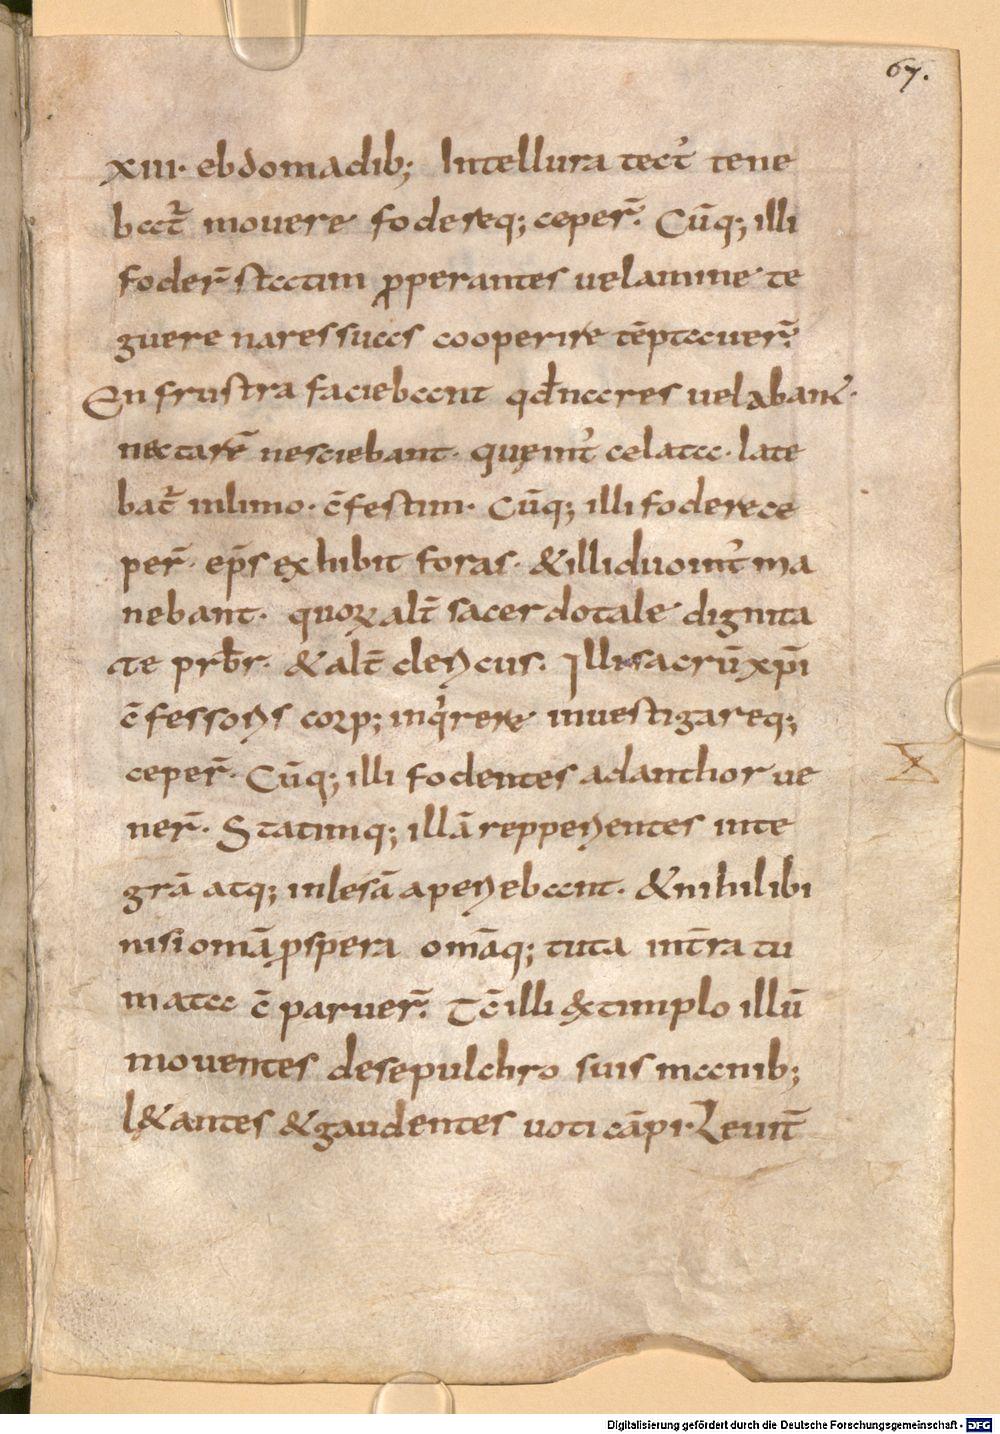 67.
XIII· ebdomadib; Intellura tect᷒ tene
bat᷒ movere fodereq; ceper̄. Cūq; illi
foder̄ statim ꝓperantes uelamine te
guere nares suas cooperire tēptauer̄.
En frustra faciebant qđ nares uelabant·
nectarē nesciebant· quęint᷒ celata· late
bat᷒ inlimo· c̄festim· Cūq; illi foderece
per̄· ep̄s exhibit foras· &illiduoint᷒ ma
nebant· quoꝝ alt̄ sacerdotale dignita
te prb̄r· &alt̄ clericus. Illi sacrū xp̄i
c̄fessoris corp; inq͛rere inuestigareq;
ceper̄· Cūq; illi fodentes adanthor ue
ner̄· Statimq; illā repperientes inte
grā atq; inlesā aperiebant· &nihilibi
nisi omā ꝓspera omāq; tuta int̄ra tu
mata c̄paruer̄. Tc̄ illi &timplo illū
mouentes desepulchro suis manib;
l&antes &gaudentes uoti cāpi· Leuit̄
Digitalisierung gefördert durch die Deutsche Forschungsgemeinschaft - DFG